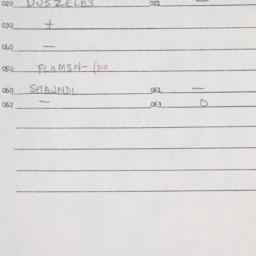 020 DUSZELB3 021 —
030 +
040 —
050 FLAM3N- (310
060 SHAJNDL 061 —
062 — 063 O